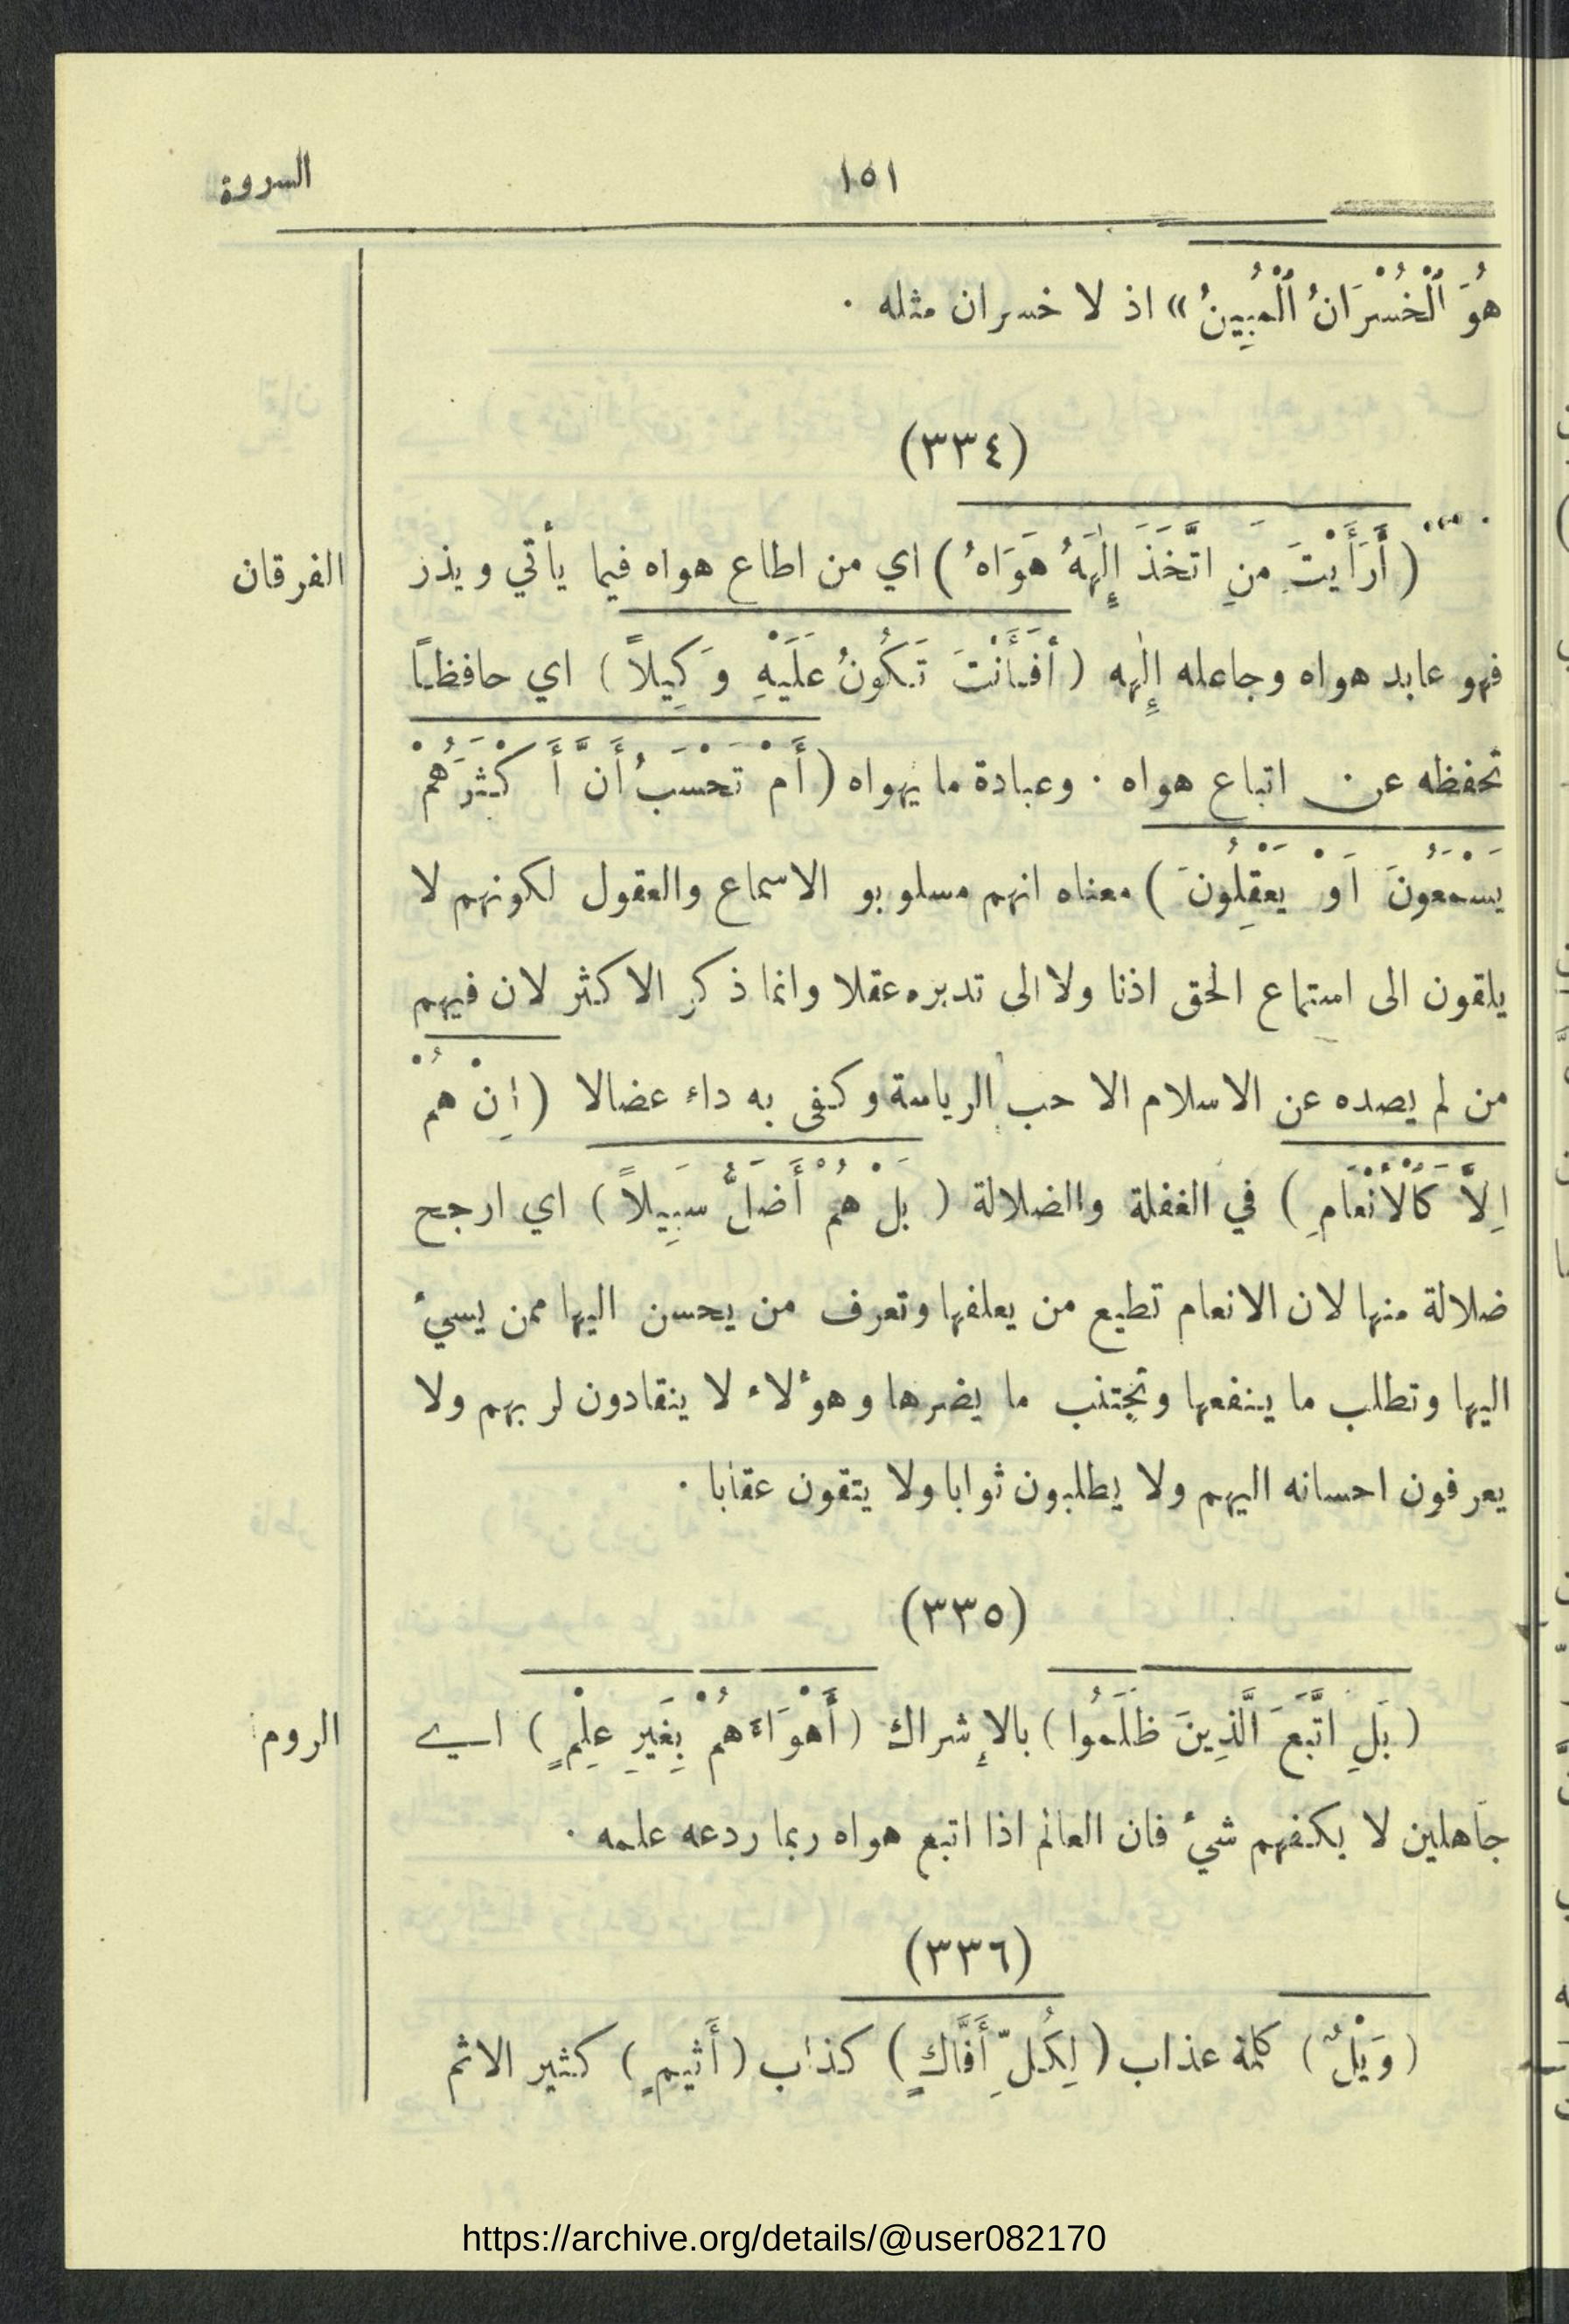 السروة
١٥١
هُوَ ٱلْخُسْرَانُ ٱلْمُبِينُ » اذ لا خسران مثله ·
(٣٣٤)
الفرقان
( أَرَأَيْتَ مَنِ اتَّخَذَ إِلٰهَهُ هَوَاهُ ) اي من اطاع هواه فيما يأتي ويذر
فهو عابد هواه وجاعله إِلٰهه ( أَفَأَنْتَ تَكُونُ عَلَيْهِ وَكِيلاً ) اي حافظاً
تحفظه عن اتباع هواه · وعبادة ما يهواه ( أَمْ تَحْسَبُ أَنَّ أَكْثَرَهُمْ
يَسْمَعُونَ اَوْ يَعْقِلُونَ ) معناه انهم مسلوبو الاسماع والعقول لكونهم لا
يلقون الى استماع الحق اذنا ولا الى تدبره عقلا وانما ذكر الاكثر لان فيهم
من لم يصده عن الاسلام الا حب الرياسة وكفى به داء عضالا ( اِنْ هُمْ
اِلاَّ كَالْأَنْعَامِ ) في الغفلة والضلالة ( بَلْ هُمْ أَضَلُّ سَبِيلاً ) اي ارجح
ضلالة منها لان الانعام تطيع من يعلفها وتعرف من يحسن اليها ممن يسيئ
اليها وتطلب ما ينفعها وتجتنب ما يضرها وهؤلاء لا ينقادون لربهم ولا
يعرفون احسانه اليهم ولا يطلبون ثوابا ولا يتقون عقابا ·
(٣٣٥)
الروم
( بَلِ اتَّبَعَ الَّذِينَ ظَلَمُوا ) بالإشراك ( أَهْوَاءَهُمْ بِغَيرِ عِلْمٍ ) اي
جاهلين لا يكفهم شيئ فان العالم اذا اتبع هواه ربما ردعه علمه ·
(٣٣٦)
( وَيْلٌ ) كلمة عذاب ( لِكُلِّ أَفَّاكٍ ) كذاب ( أَثيمٍ ) كثير الاثم
https://archive.org/details/@user082170